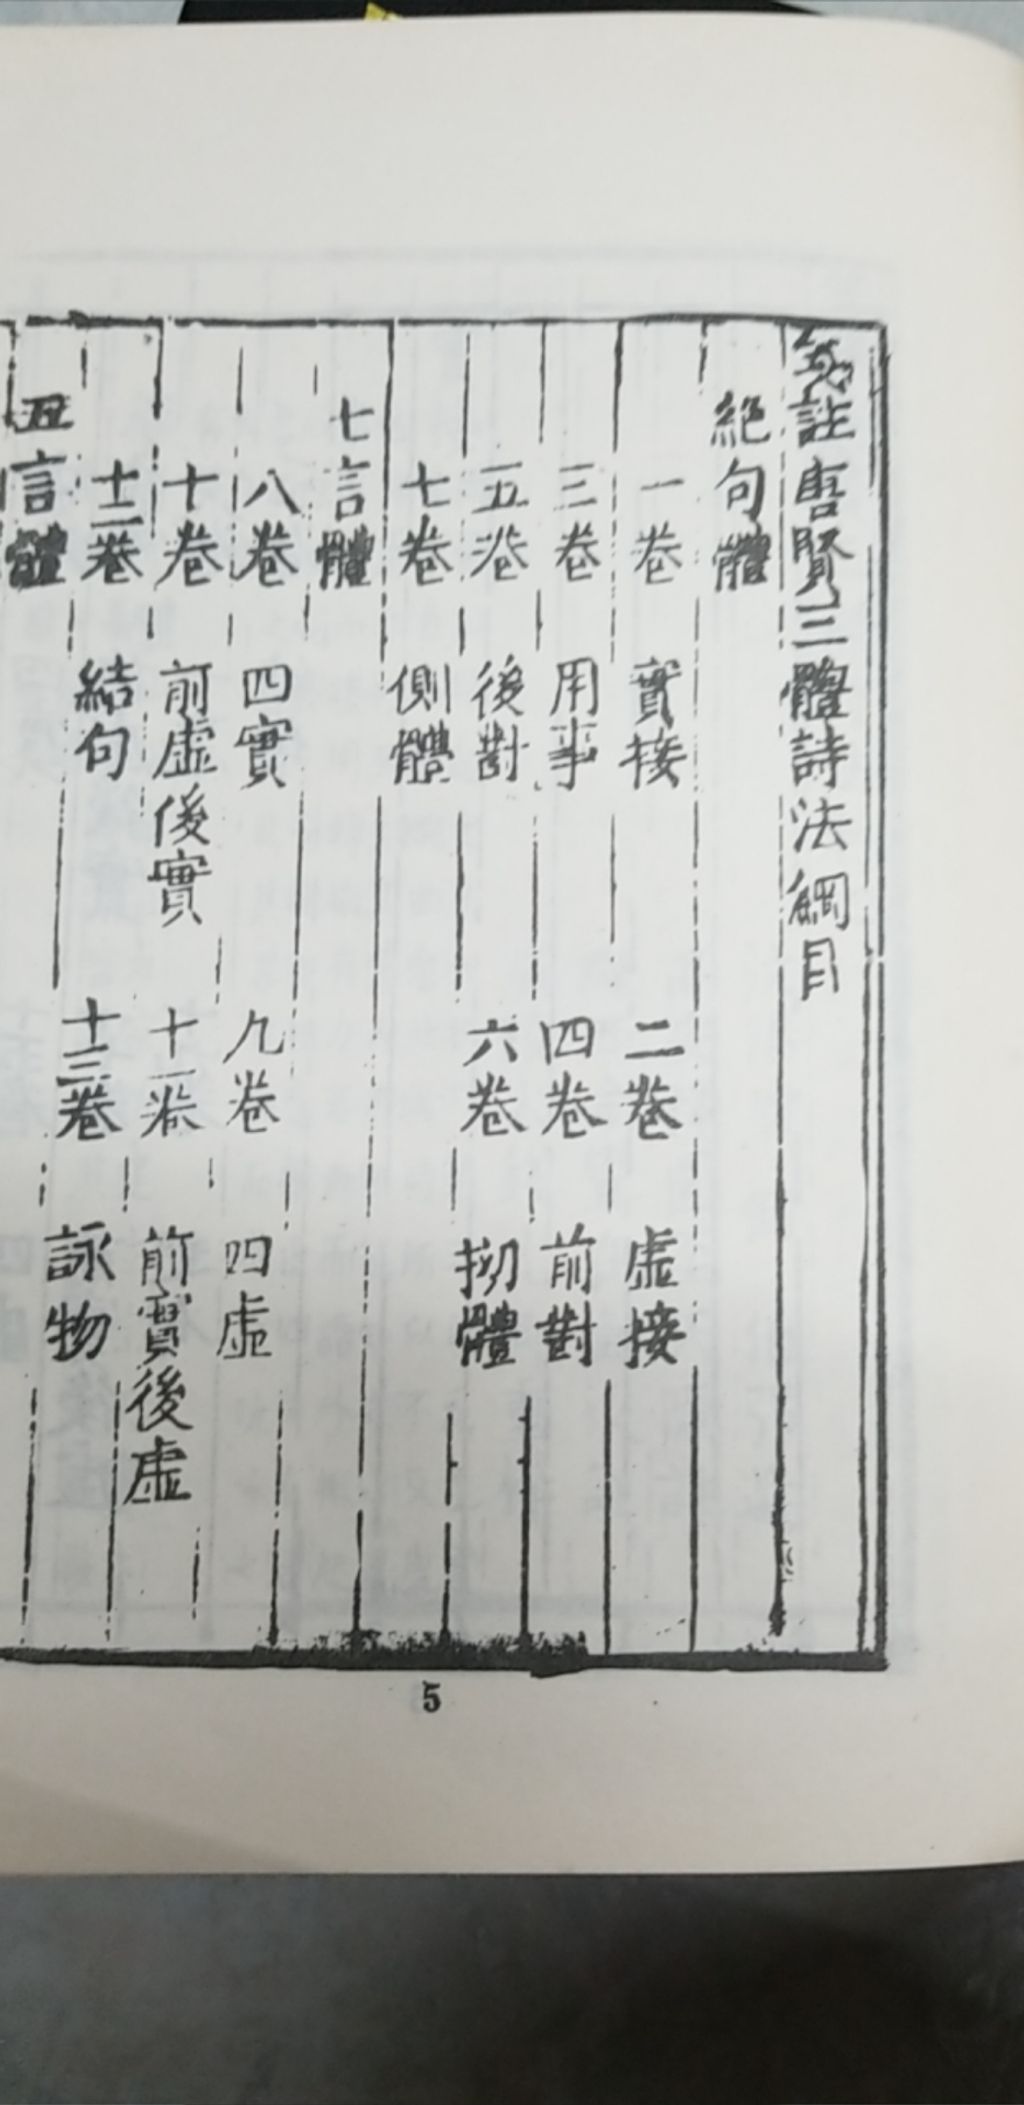 箋註唐賢三體詩法綱目
絕句體
一卷 實接 二卷 虛接
三卷 用事 四卷 前對
五卷 後對 六卷 拗體
七卷 側體
七言體
八卷 四實 九卷 四虛
十卷 前虛後實 十一卷 前實後虛
十二卷 結句 十三卷 詠物
五言體
5